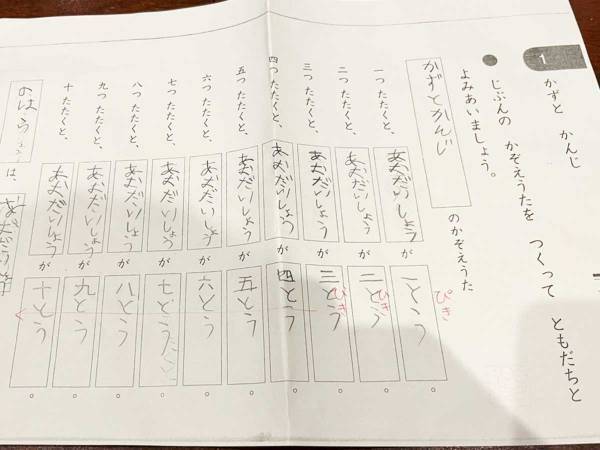 1
かずと かんじ
じぶんの かぞえうたを つくって ともだちと
よみあいましょう。
かずとかんじ のかぞえうた
一つ たたくと、 あおだいしょう が 一とう 。
ぴき
二つ たたくと、 あおだいしょう が 二とう 。
ひき
三つ たたくと、 あおだいしょう が 三とう 。
びき
四つ たたくと、 あおだいしょう が 四とう 。
五つ たたくと、 あおだいしょう が 五とう 。
六つ たたくと、 あおだいしょう が 六とう 。
七つ たたくと、 あおだいしょう が 七とう 。
八つ たたくと、 あおだいしょう が 八とう 。
九つ たたくと、 あおだいしょう が 九とう 。
十 たたくと、 あおだいしょう が 十とう 。
のはら は、